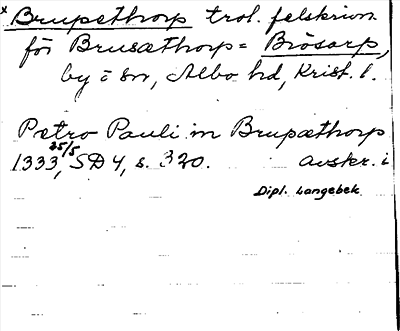 x Brupæthorp trol. felskrivn.
för Brusæthorp = Brösarp,
by i sn, Albo hd, Krist. l.
Pætro Pauli in Brupæthorp
1333 25/5, SD 4, s. 320. avskr. i
Dipl. Langebek